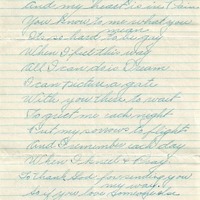 and my heart is in pain
You know to me what you
mean
It is so hard to be gay
When I feel this way
All I can do is Dream
I can picture a gate
With you there to wait
To greet me each night
Put my sorrows to flight
And I remember each day
When I kneel & Pray
To thank God for sending you
my way.
So if you lose someone